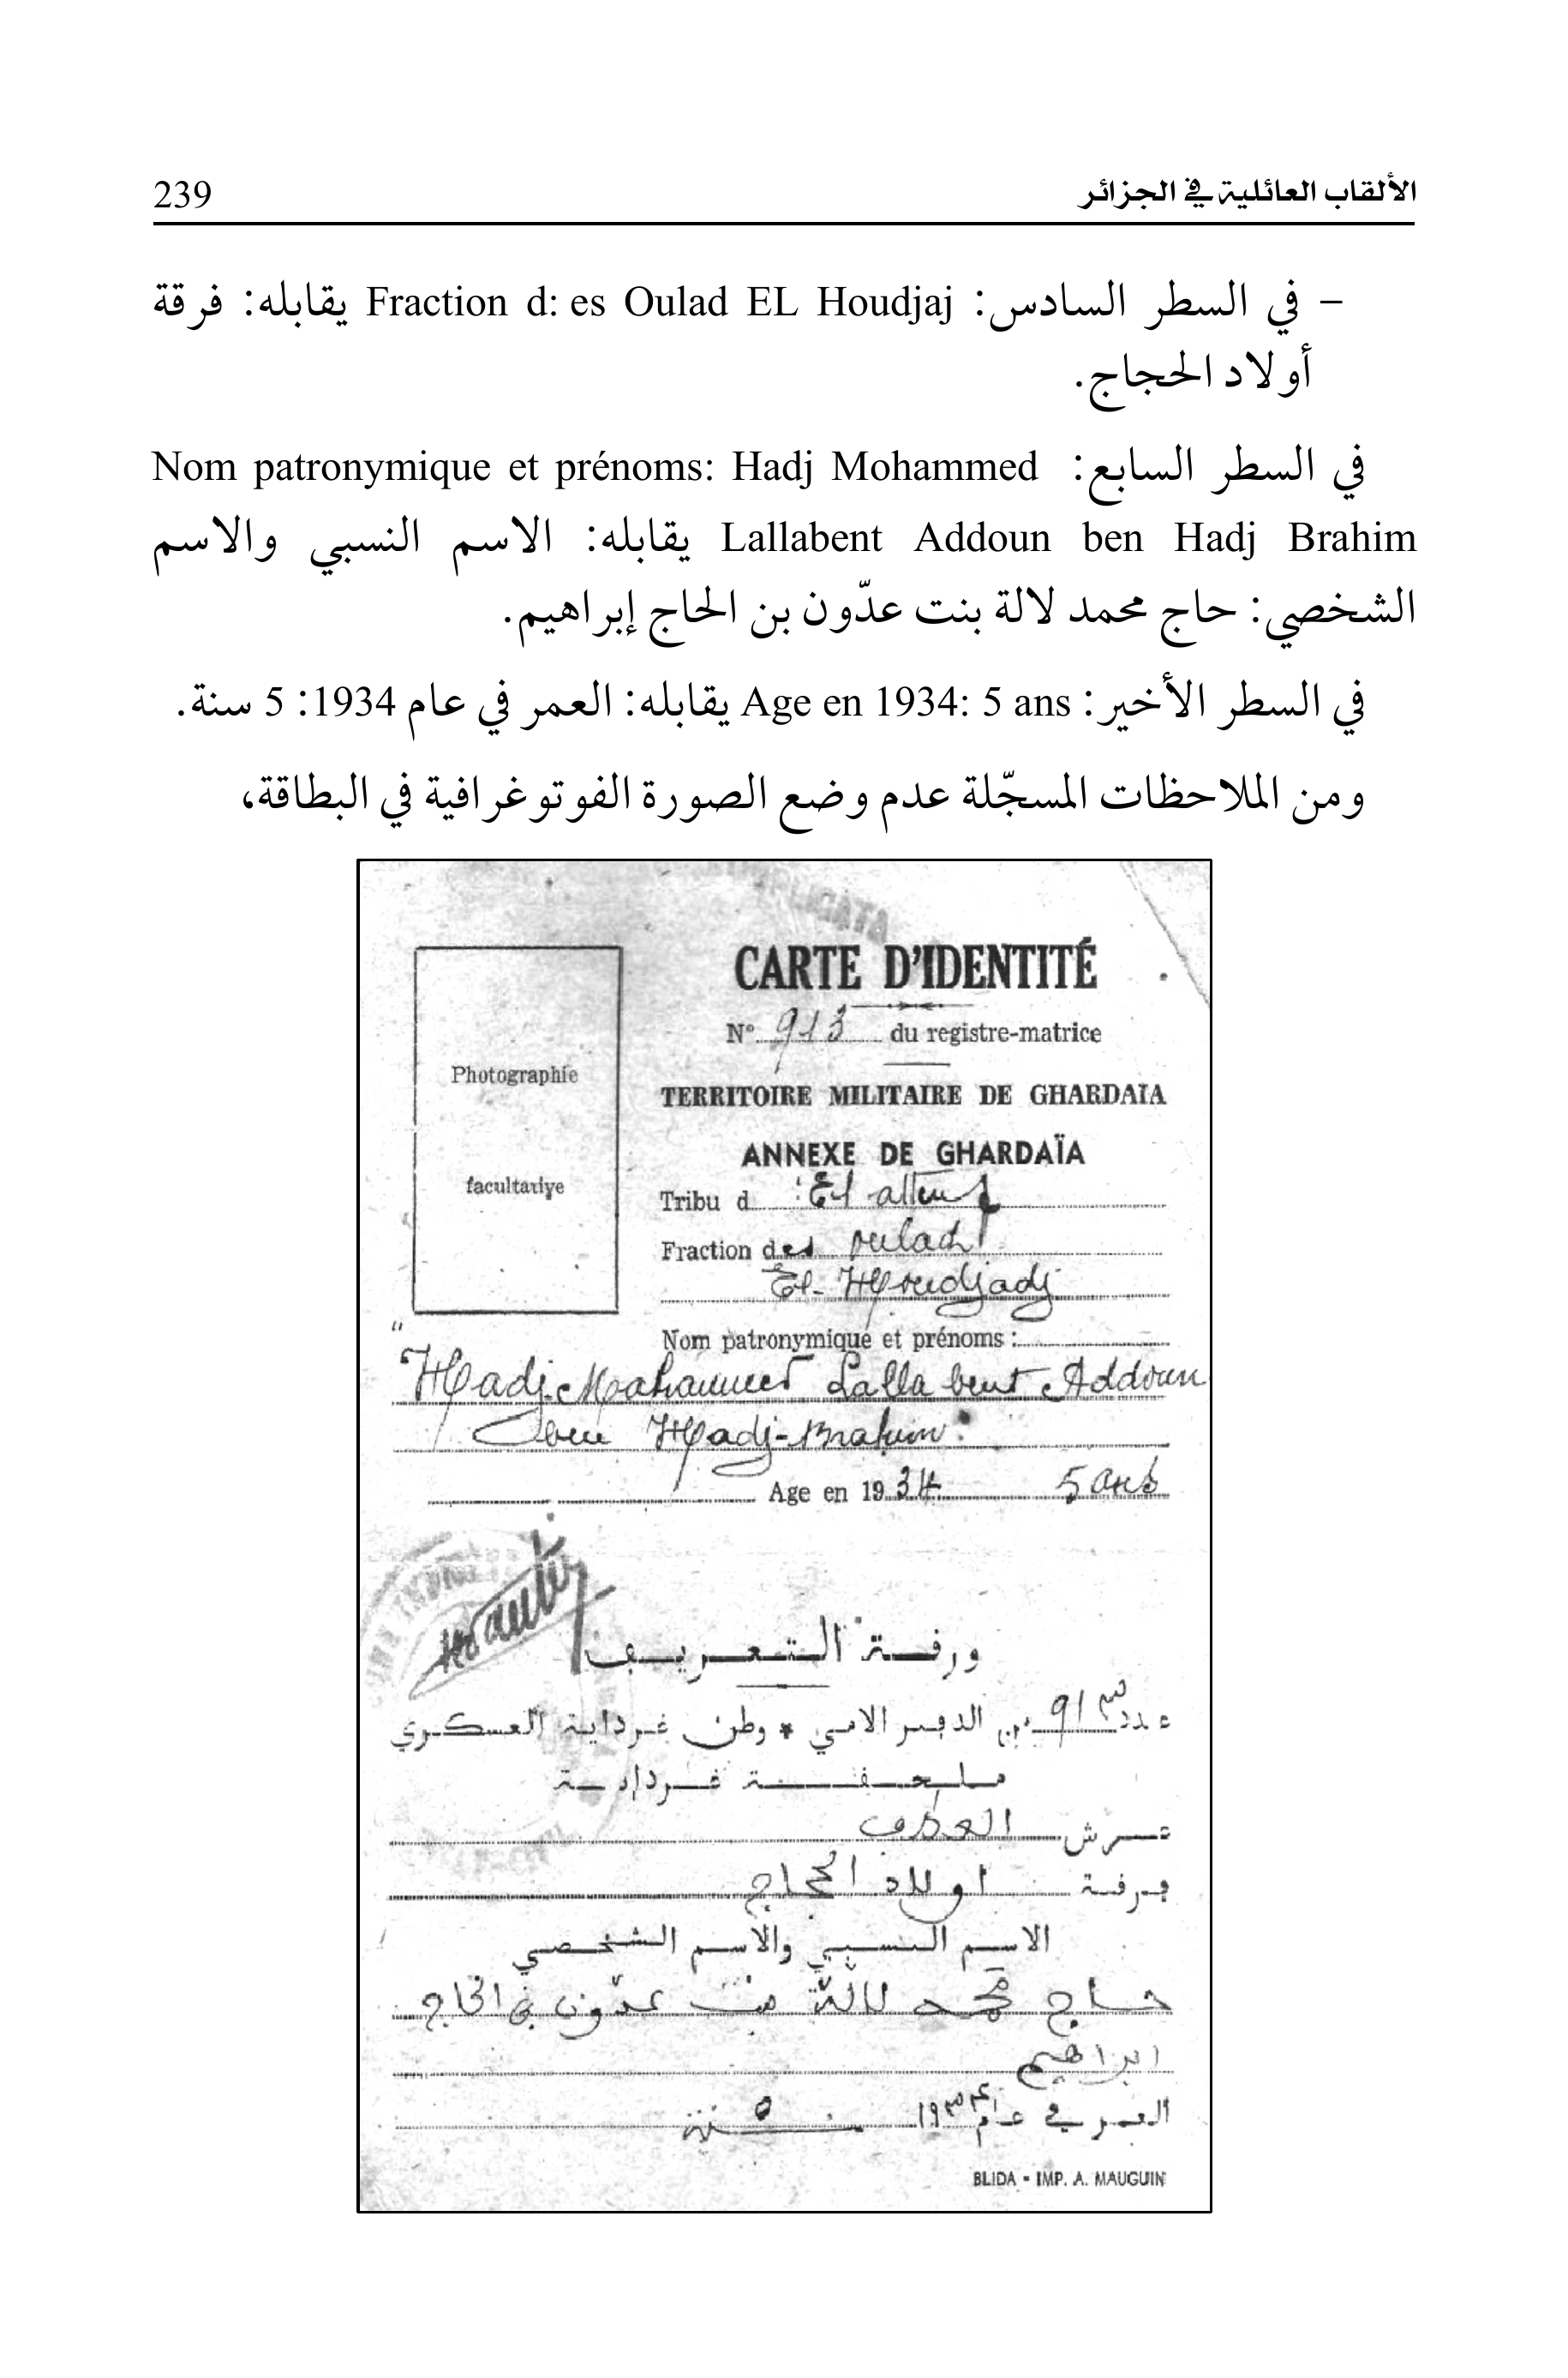 الألقاب العائلية في الجزائر 239
– في السطر السادس: Fraction d: es Oulad EL Houdjaj يقابله: فرقة
أولاد الحجاج.
في السطر السابع: Nom patronymique et prénoms: Hadj Mohammed
Lallabent Addoun ben Hadj Brahim يقابله: الاسم النسبي والاسم
الشخصي: حاج محمد لالة بنت عدّون بن الحاج إبراهيم.
في السطر الأخير: Age en 1934: 5 ans يقابله: العمر في عام 1934: 5 سنة.
ومن الملاحظات المسجّلة عدم وضع الصورة الفوتوغرافية في البطاقة،
CARTE D'IDENTITÉ
N° 913 du registre-matrice
Photographie
facultative
TERRITOIRE MILITAIRE DE GHARDAÏA
ANNEXE DE GHARDAÏA
Tribu d El atteuf
Fraction des oulad
El-Houdjadj
Nom patronymique et prénoms :
Hadj-Mohammed Lalla bent Addoun
ben Hadj-Brahim
Age en 1934 5 ans
ورقة التعريف
عدد ٩١٣ من الدفتر الامي * وطن غرداية العسكري
ملحقة غرداية
عرش العطف
فرقة اولاد الحجاج
الاسم النسبي والاسم الشخصي
حاج محمد لالة بنت عدّون بن الحاج
ابراهيم
العمر في عام ١٩٣٤ ٥ سنة
BLIDA - IMP. A. MAUGUIN